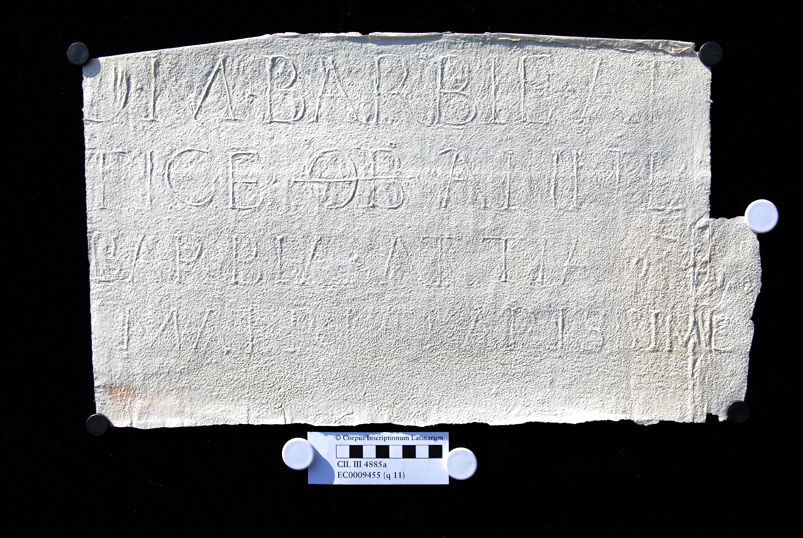 DIA·BARBIE·AT
TICE·OB·AN II
BARBIA·ATTIA
MATRI CARISSIME
© Corpus Inscriptionum Latinarum
CIL III 4885a
EC0009455 (q 11)